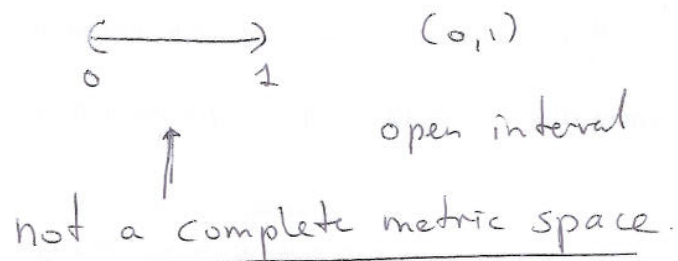 (0,1)
0 1
open interval
not a complete metric space.